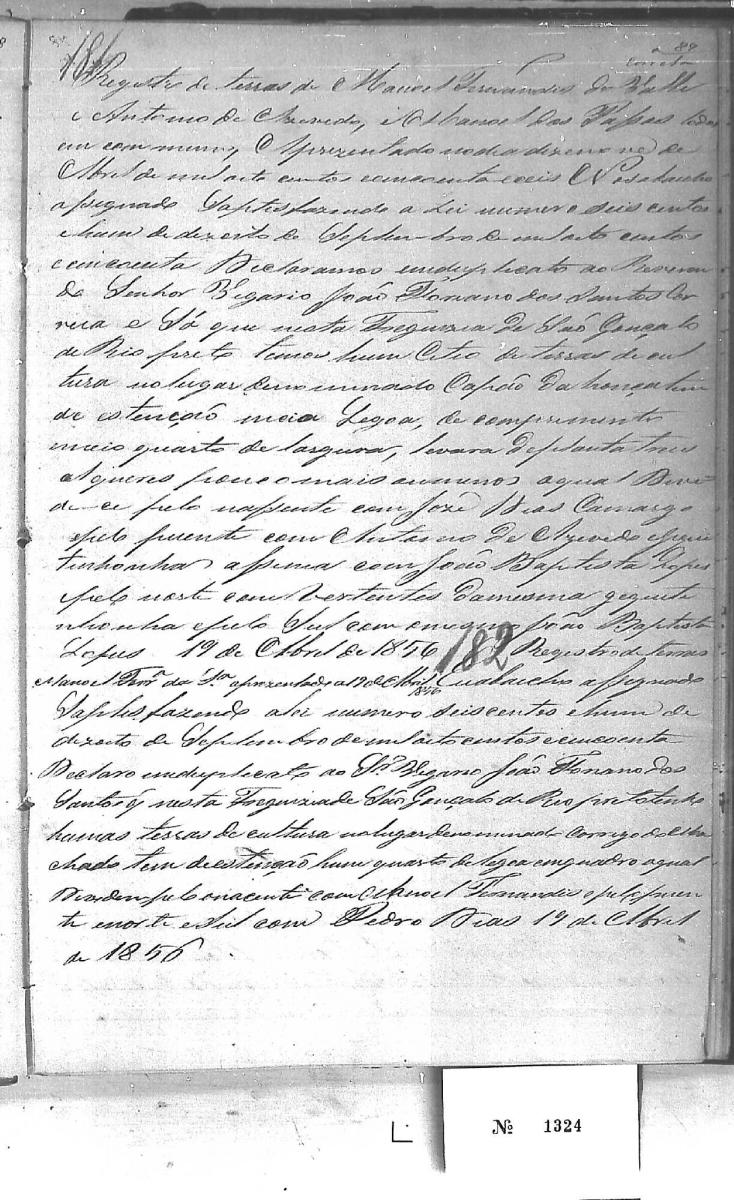 89
181
Registro de terras de Manoel Fernandes do Valle
e Antonio de Azevedo, e Manoel dos Passos todos
em commum, Aprezentado no dia dezenove de
Abril de mil oito centos concoenta e ceis Nos abaicho
assignado Saptisfazendo a Lei numero seis centos
e hum de dezoito de Septembro de mil oito centos
e cincoenta Declaramos em duplicato ao Reveren
do Senhor Vegario João Floriano dos Santos Cor
rea e Sá que nesta Freguezia de São Gonçalo
do Rio preto temos hum Citio de terras de cul
tura no lugar denominado Capão da honça tem
de estenção meia Legoa, de comprimento
meio quarto de largura, levara de planta tres
alqueres pouco mais ou menos a qual Devi
de-ce pelo nassente com José Dias Camargo
e pelo puente com Antonio de Azevedo e giqui
tinhonha assima com João Baptista Lopes
e pelo norte com Vertentes da mesma gequete
nhonha e pelo Sul com o mesmo João Baptista
Lopes 19 de Abril de 1856 182 Registro de terras
Manoel Fer.es da S.a aprezentado a 19 de Abril 1856 Eu abaicho assignado
Saptisfazendo a lei numero seis centos e hum de
dezoito de Septembro de mil oito centos e cincoenta
Declaro em duplicato ao Sr. Vegario João Floriano dos
Santos q nesta Freguezia de São Gonçalo do Rio preto tenho
humas terras de cultura no lugar denominado Corrigo do Ma
chado tem de estenção hum quarto de legoa em quadro a qual
Devidem pelo nacente com Manoel Fernandis e pelo puen
te e norte e Sul com Pedro Dias 19 de Abril
de 1856
Nº 1324